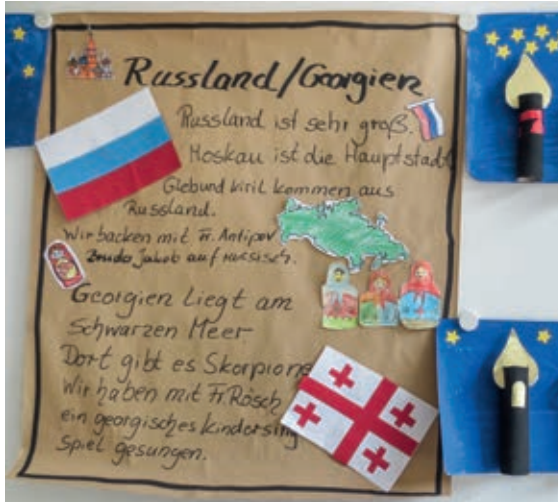 Russland/Georgien
Russland ist sehr groß.
Moskau ist die Hauptstadt
Gleb und Kiril kommen aus
Russland.
Wir backen mit Fr. Antipov
Bruda Jakob auf russisch.
Georgien liegt am
Schwarzen Meer
Dort gibt es Skorpione
Wir haben mit Fr. Rösch
ein georgisches Kindersing
Spiel gesungen.